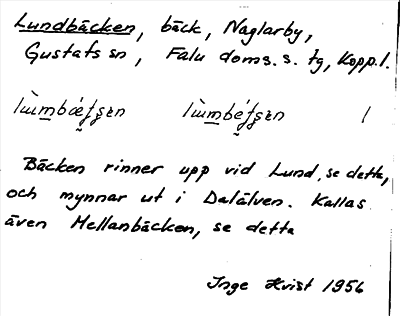 Lundbäcken, bäck, Naglarby,
Gustafs sn, Falu doms. s. tg, Kopp. l.
Bäcken rinner upp vid Lund, se detta,
och mynnar ut i Dalälven. Kallas
även Mellanbäcken, se detta
Inge Hvist 1956